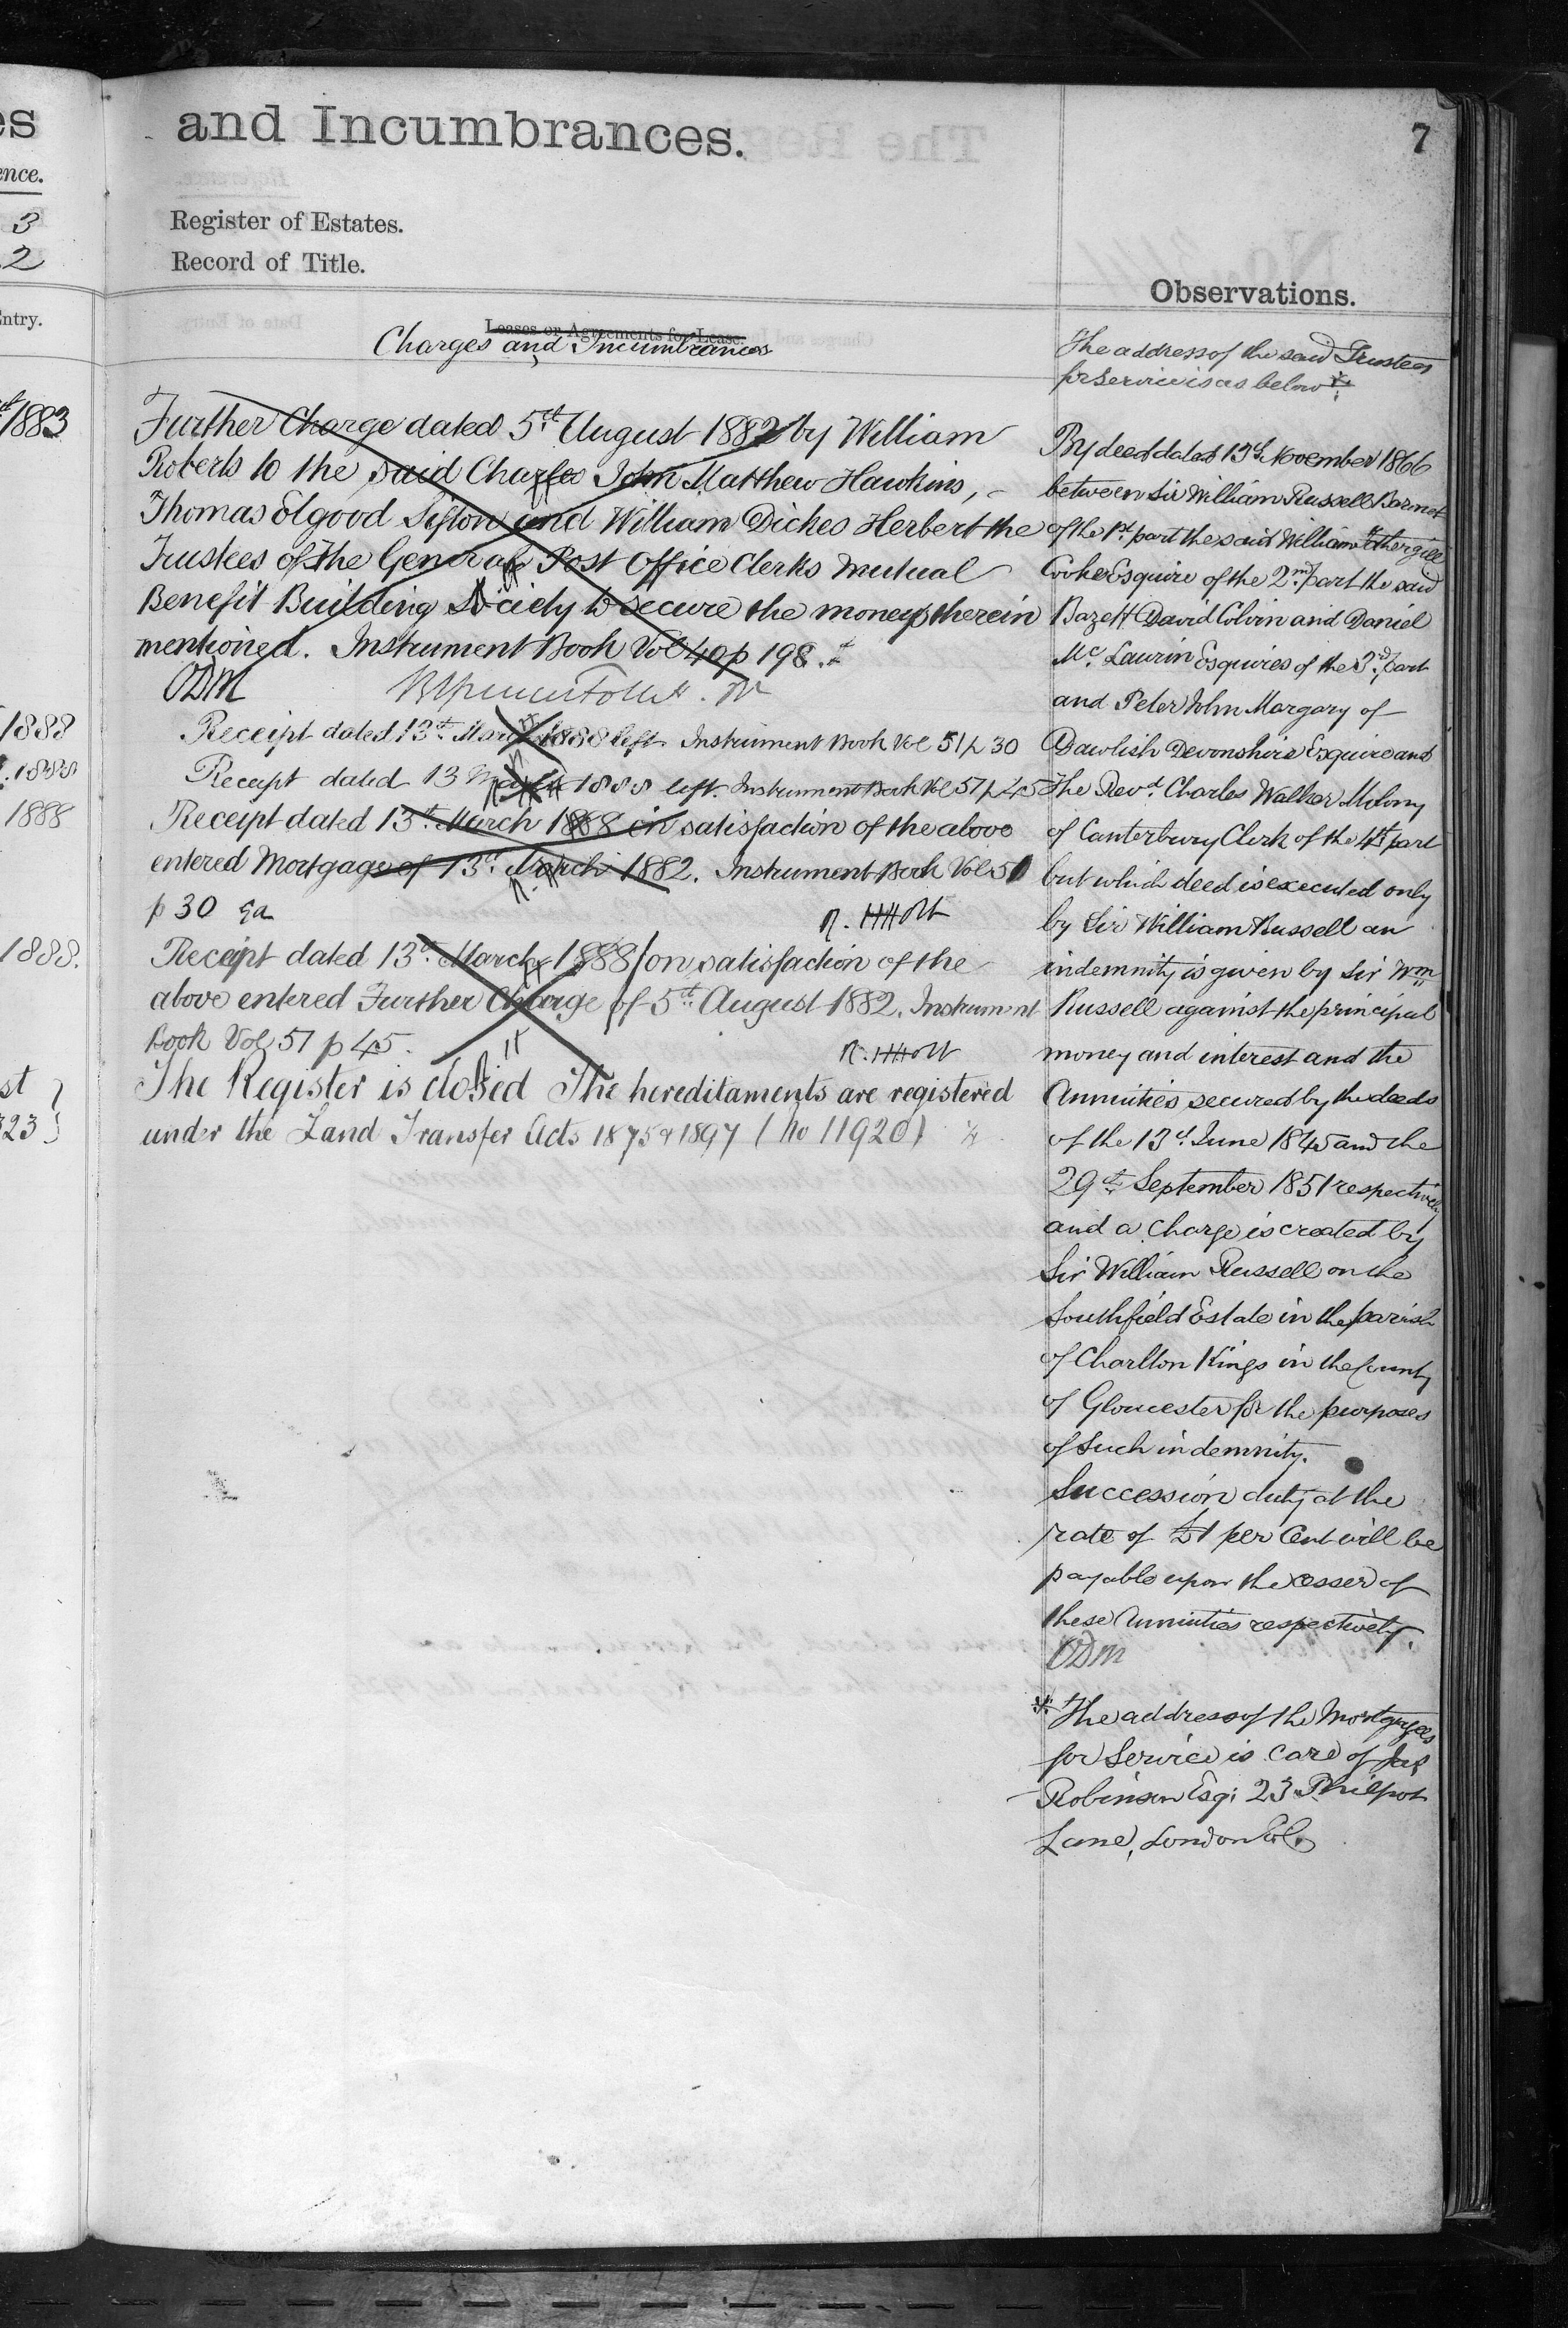 es
ence.
3
2
Entry.
1883
1888
1888
1888
1888.
st
323
and Incumbrances.
7
Register of Estates.
Record of Title.
Leases or Agreements for Lease.
Charges and Incumbrances
Further Charge dated 5th August 1882 by William
Roberts to the said Charles John Matthew Hawkins,
Thomas Elgood Sifton and William Dickes Herbert the
Trustees of the General Post Office Clerks Mutual
Benefit Building Society to secure the moneys therein
mentioned. Instrument Book Vol 40 p 198.
ODM
Receipt dated 13th March 1888 left Instrument Book Vol 51 p 30
Receipt dated 13 March 1888 left. Instrument Book Vol 51 p 45
Receipt dated 13th March 1888 in satisfaction of the above
entered Mortgage of 13th March 1882. Instrument Book Vol 51
p 30
Receipt dated 13th March 1888 on satisfaction of the
above entered Further Charge of 5th August 1882. Instrument
Book Vol 51 p 45.
The Register is closed The hereditaments are registered
under the Land Transfer Acts 1875 & 1897 (No 11920)
Observations.
The address of the said Trustees
for Service is as below
By deed dated 13th November 1866
between Sir William Russell Baronet
of the 1st part the said William Fothergill
Cooke Esquire of the 2nd part the said
Bazett David Colvin and Daniel
Mc Laurin Esquires of the 3rd part
and Peter John Margary of
Dawlish Devonshire Esquire and
the Revd. Charles Walker Molony
of Canterbury Clerk of the 4th part
but which deed is executed only
by Sir William Russell an
indemnity is given by Sir Wm
Russell against the principal
money and interest and the
Annuities secured by the deeds
of the 13th June 1845 and the
29th September 1851 respectively
and a Charge is created by
Sir William Russell on the
Southfield Estate in the parish
of Charlton Kings in the County
of Gloucester for the purposes
of such indemnity.
Succession duty at the
rate of £1 per Cent will be
payable upon the cesser of
these Annuities respectively.
ODM
The address of the Mortgagees
for Service is care of Jas
Robinson Esq: 23 Philpot
Lane, London E.C.